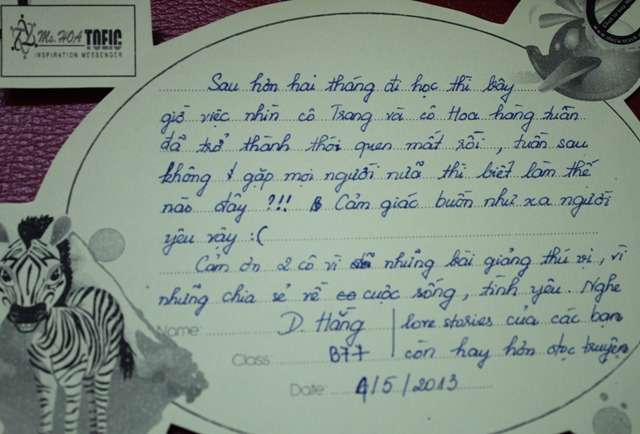 Ms. HOA TOEIC
INSPIRATION MESSENGER
Sau hơn hai tháng đi học thì bây
giờ việc nhìn cô Trang và cô Hoa hàng tuần
đã trở thành thói quen mất rồi, tuần sau
không gặp mọi người nữa thì biết làm thế
nào đây ?!! Cảm giác buồn như xa người
yêu vậy :(
Cảm ơn 2 cô vì những bài giảng thú vị, vì
những chia sẻ về cuộc sống, tình yêu. Nghe
Name: D. Hằng love stories của các bạn
Class: B77 còn hay hơn đọc truyện
Date: 4/5/2013